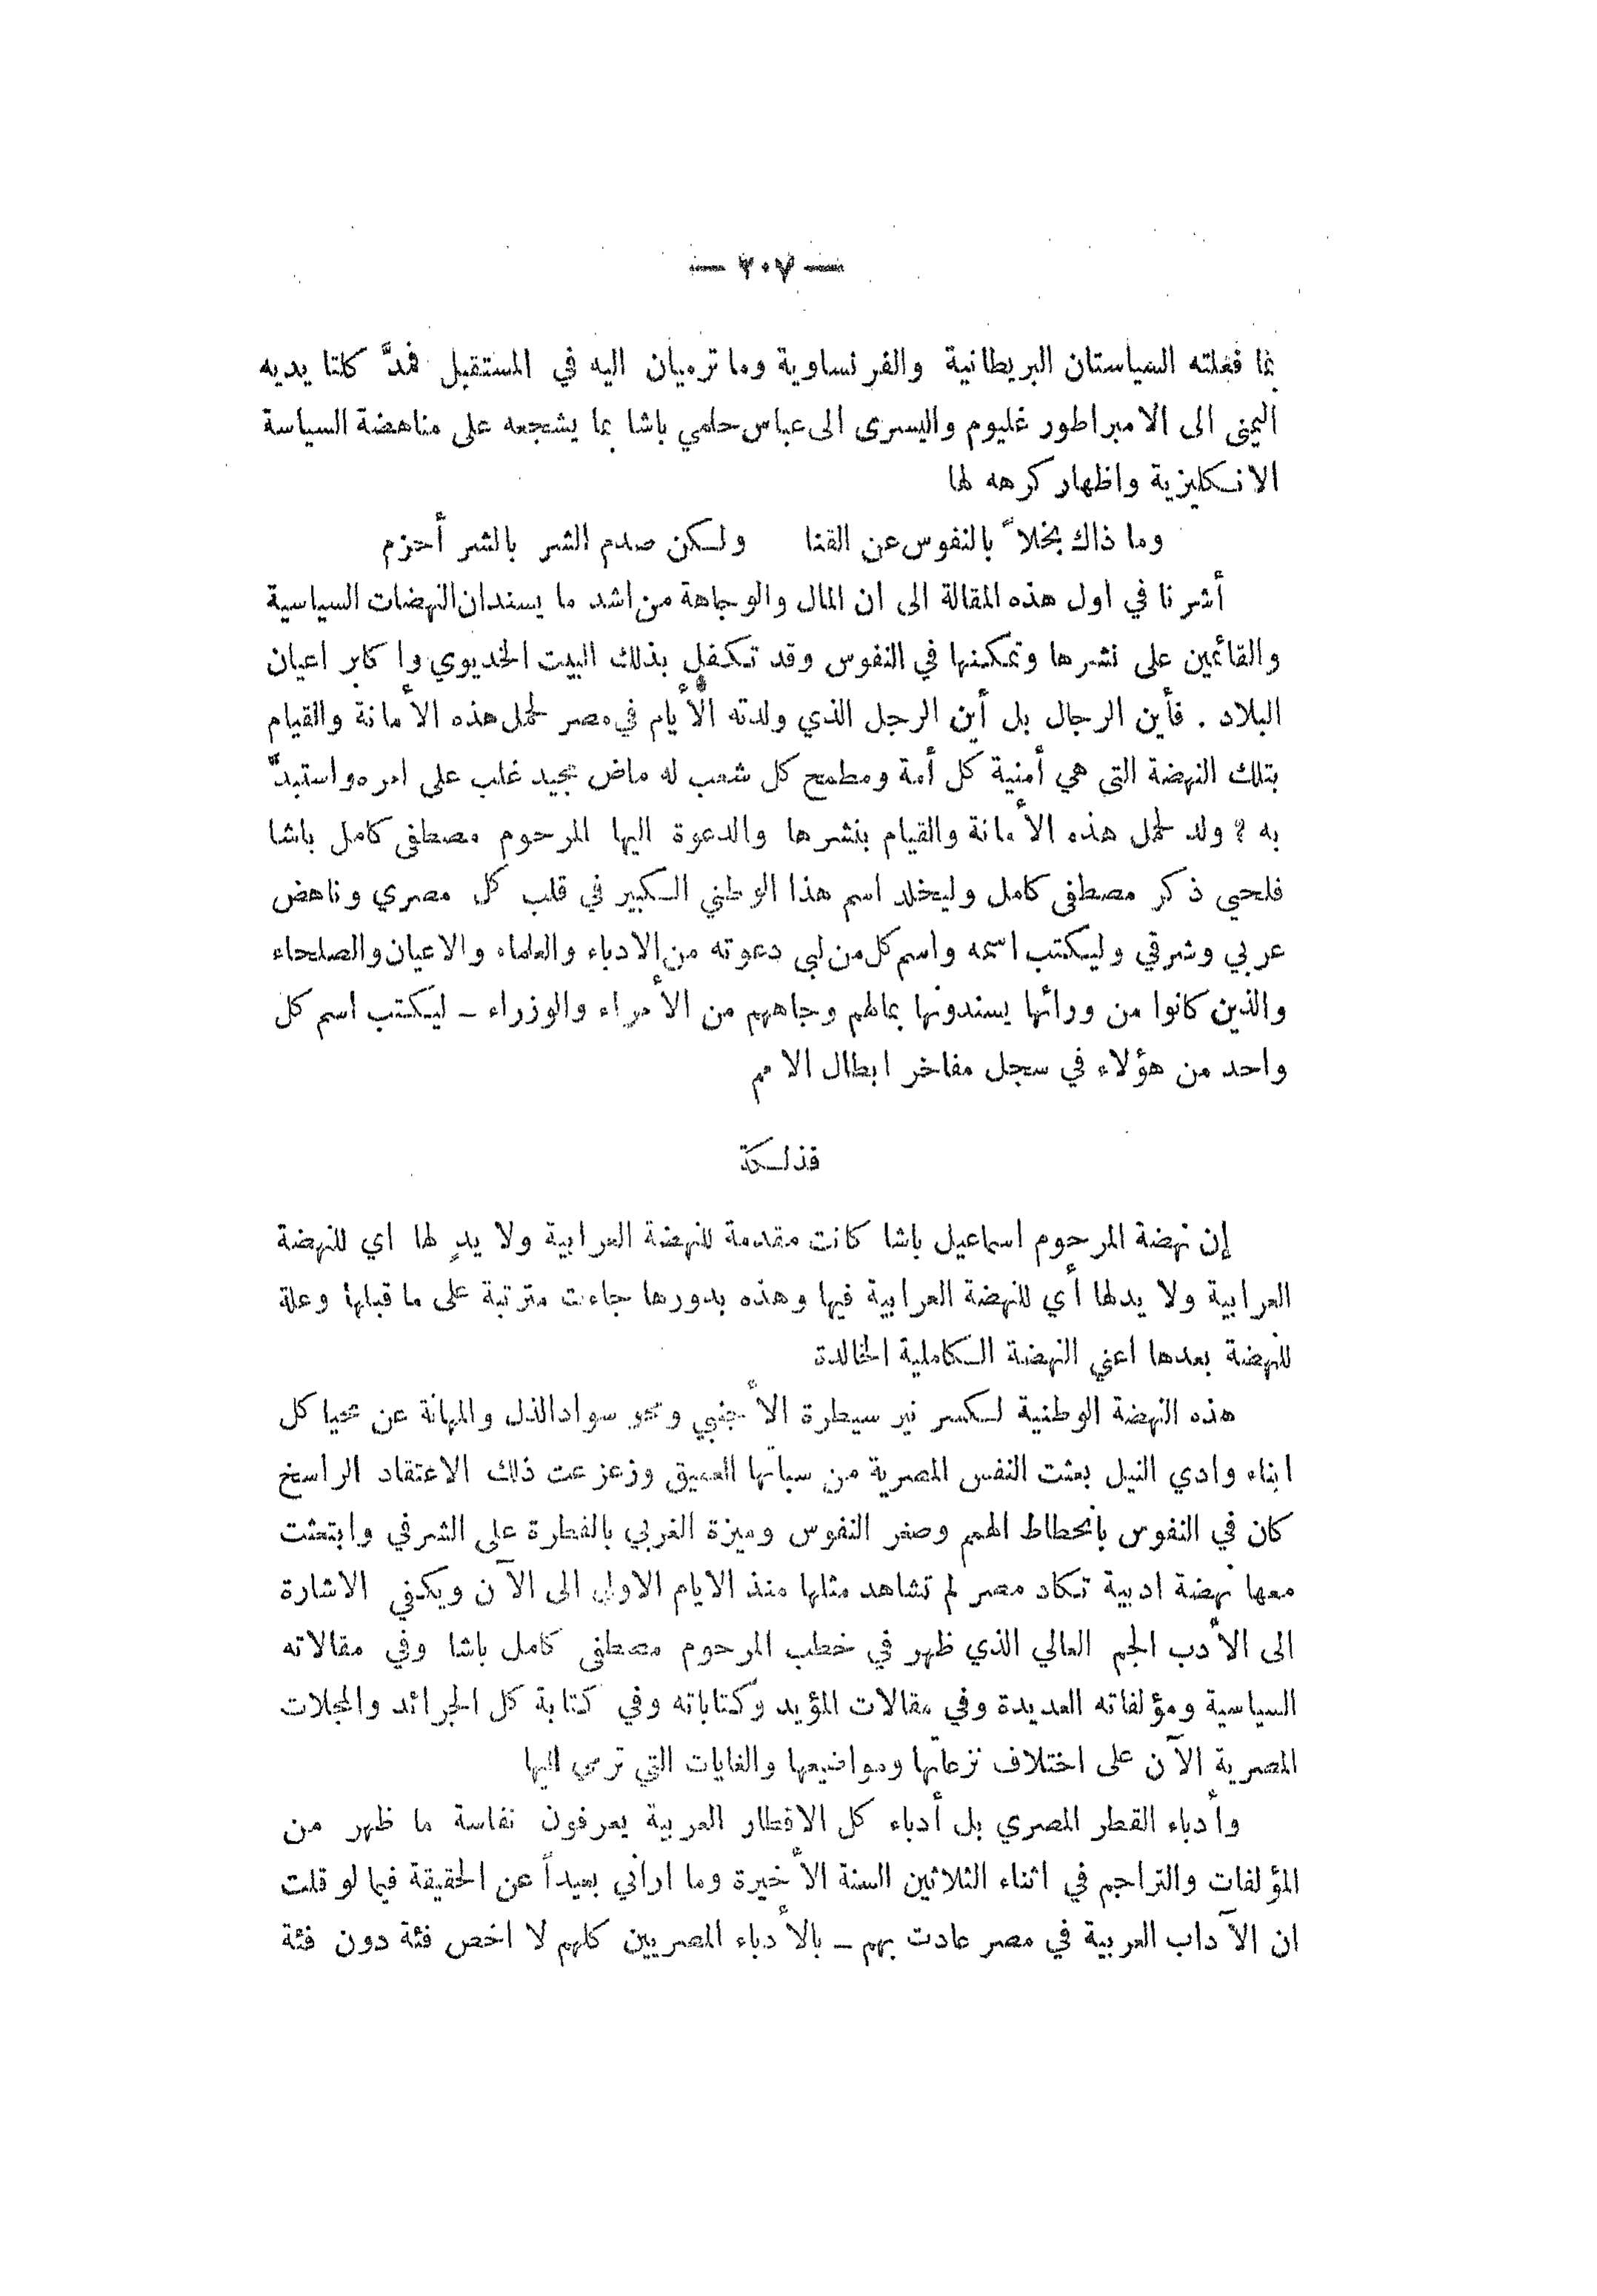 — ٣٠٧ —
بما فعلته السياستان البريطانية والفرنساوية وما ترميان اليه في المستقبل فمدَّ كلتا يديه
اليمنى الى الامبراطور غليوم واليسرى الى عباس حلمي باشا بما يشجعه على مناهضة السياسة
الانكليزية واظهار كرهه لها
وما ذاك بخلاً بالنفوس عن القنا ولكن صدم الشر بالشر أحزم
أشرنا في اول هذه المقالة الى ان المال والوجاهة من اشد ما يسندان النهضات السياسية
والقائمين على نشرها وتمكينها في النفوس وقد تكفل بذلك البيت الخديوي واكابر اعيان
البلاد . فأين الرجال بل أين الرجل الذي ولدته الأيام في مصر لحمل هذه الأمانة والقيام
بتلك النهضة التي هي أمنية كل أمة ومطمح كل شعب له ماض مجيد غلب على امره واستبدَّ
به ؟ ولد لحمل هذه الأمانة والقيام بنشرها والدعوة اليها المرحوم مصطفى كامل باشا
فلحيي ذكر مصطفى كامل وليخلد اسم هذا الوطني الكبير في قلب كل مصري وناهض
عربي وشرقي وليكتب اسمه واسم كل من لبى دعوته من الادباء والعلماء والاعيان والصلحاء
والذين كانوا من ورائها يسندونها بمالهم وجاههم من الأمراء والوزراء – ليكتب اسم كل
واحد من هؤلاء في سجل مفاخر ابطال الامم
فذلكة
إن نهضة المرحوم اسماعيل باشا كانت مقدمة للنهضة العرابية ولا يدٍ لها اي للنهضة
العرابية ولا يد لها أي للنهضة العرابية فيها وهذه بدورها جاءت مترتبة على ما قبلها وعلة
للنهضة بعدها اعني النهضة الكاملية الخالدة
هذه النهضة الوطنية لكسر نير سيطرة الأجنبي ومحو سواد الذل والمهانة عن محيا كل
ابناء وادي النيل بعثت النفس المصرية من سباتها العميق وزعزعت ذلك الاعتقاد الراسخ
كان في النفوس بانحطاط الهمم وصغر النفوس وميزة الغربي بالفطرة على الشرقي وابتعثت
معها نهضة ادبية تكاد مصر لم تشاهد مثلها منذ الايام الاولى الى الآن ويكفي الاشارة
الى الأدب الجم العالي الذي ظهر في خطب المرحوم مصطفى كامل باشا وفي مقالاته
السياسية ومؤلفاته العديدة وفي مقالات المؤيد وكتاباته وفي كتابة كل الجرائد والمجلات
المصرية الآن على اختلاف نزعاتها ومواضيعها والغايات التي ترمى اليها
وأدباء القطر المصري بل أدباء كل الاقطار العربية يعرفون نفاسة ما ظهر من
المؤلفات والتراجم في اثناء الثلاثين السنة الأخيرة وما اراني بعيداً عن الحقيقة فيما لو قلت
ان الآداب العربية في مصر عادت بهم – بالأدباء المصريين كلهم لا اخص فئة دون فئة